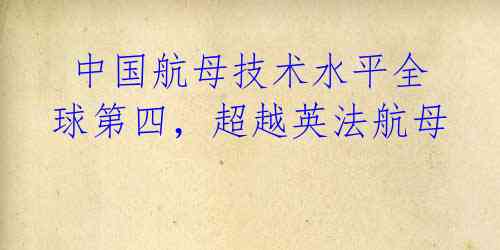 中国航母技术水平全
球第四，超越英法航母